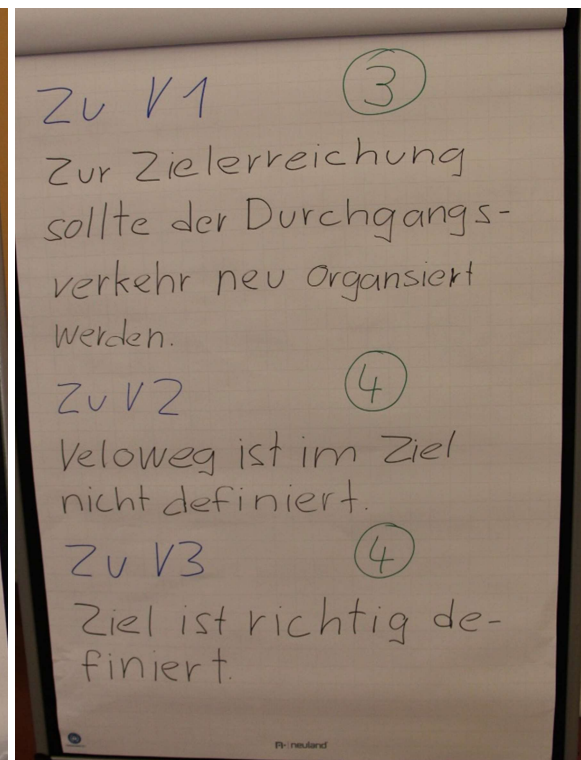 Zu V1 3
Zur Zielerreichung
sollte der Durchgangs-
verkehr neu organsiert
werden.
Zu V2 4
Veloweg ist im Ziel
nicht definiert.
Zu V3 4
Ziel ist richtig de-
finiert.
neuland